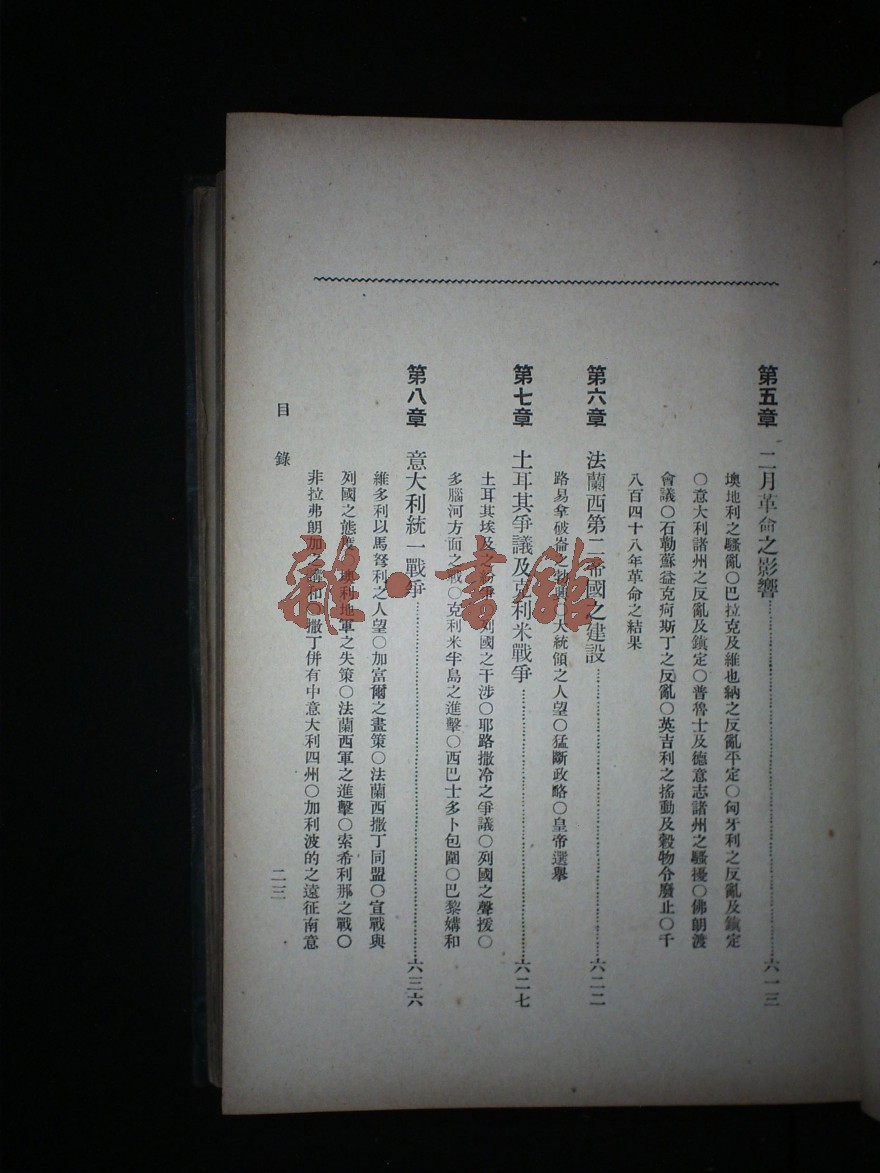 第五章　二月革命之影響……六一三
墺地利之騷亂〇巴拉克及維也納之反亂平定〇匈牙利之反亂及鎭定
〇意大利諸州之反亂及鎭定〇普魯士及德意志諸州之騷擾〇佛朗渡
會議〇石勒蘇益克疴斯丁之反亂〇英吉利之搖動及穀物令廢止〇千
八百四十八年革命之結果
第六章　法蘭西第二帝國之建設……六二二
路易拿破崙之　〇大統領之人望〇猛斷政略〇皇帝選舉
第七章　土耳其爭議及克利米戰爭……六二七
土耳其埃及之　列國之干涉〇耶路撒冷之爭議〇列國之聲援〇
多腦河方面之戰〇克利米半島之進擊〇西巴士多卜包圍〇巴黎媾和
第八章　意大利統一戰爭……六三六
維多利以馬弩利之人望〇加富爾之畫策〇法蘭西撒丁同盟〇宣戰與
列國之態度　地軍之失策〇法蘭西軍之進擊〇索希利那之戰〇
非拉弗朗加之講和〇撒丁併有中意大利四州〇加利波的之遠征南意
目錄　二三
雜·書館